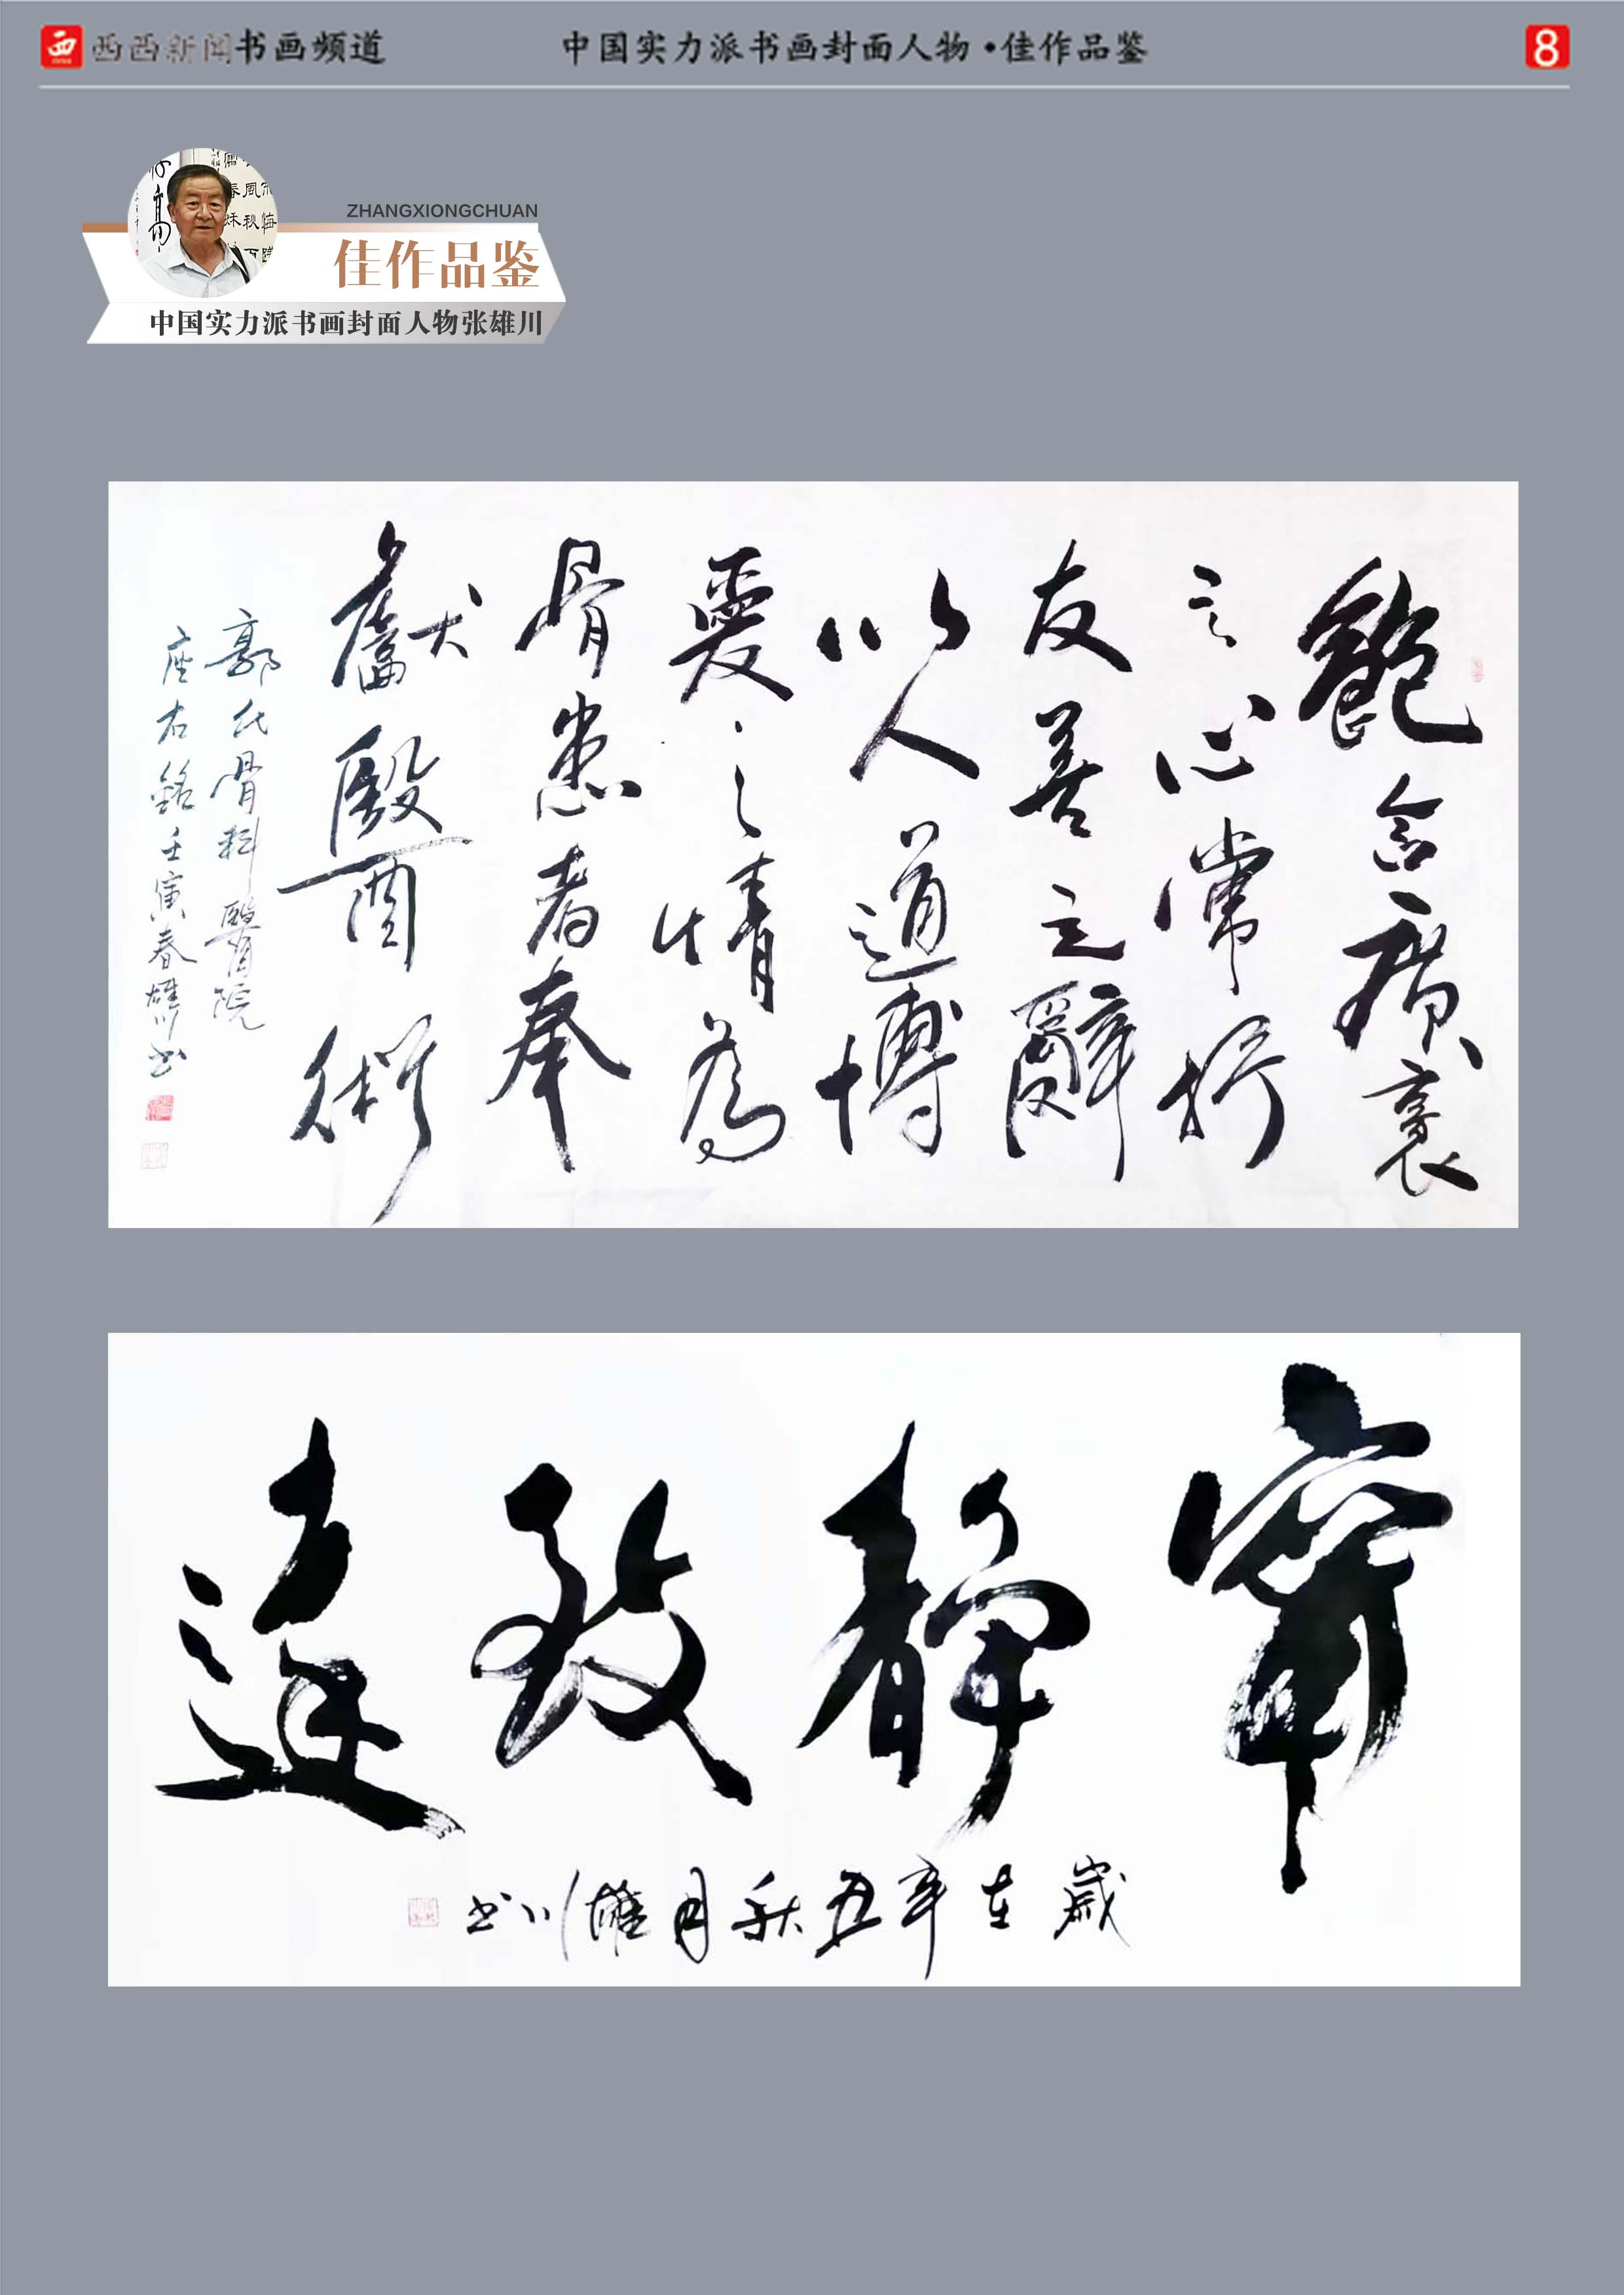 西西新闻书画频道
中国实力派书画封面人物•佳作品鉴
8
ZHANGXIONGCHUAN
佳作品鉴
中国实力派书画封面人物张雄川
飽含廣褱
之心常抒
友善之辭
以人道博
愛之情為
骨患者奉
獻醫術
郭氏骨科醫院
座右銘壬寅春雄川书
寧靜致遠
歲在辛丑秋月雄川书